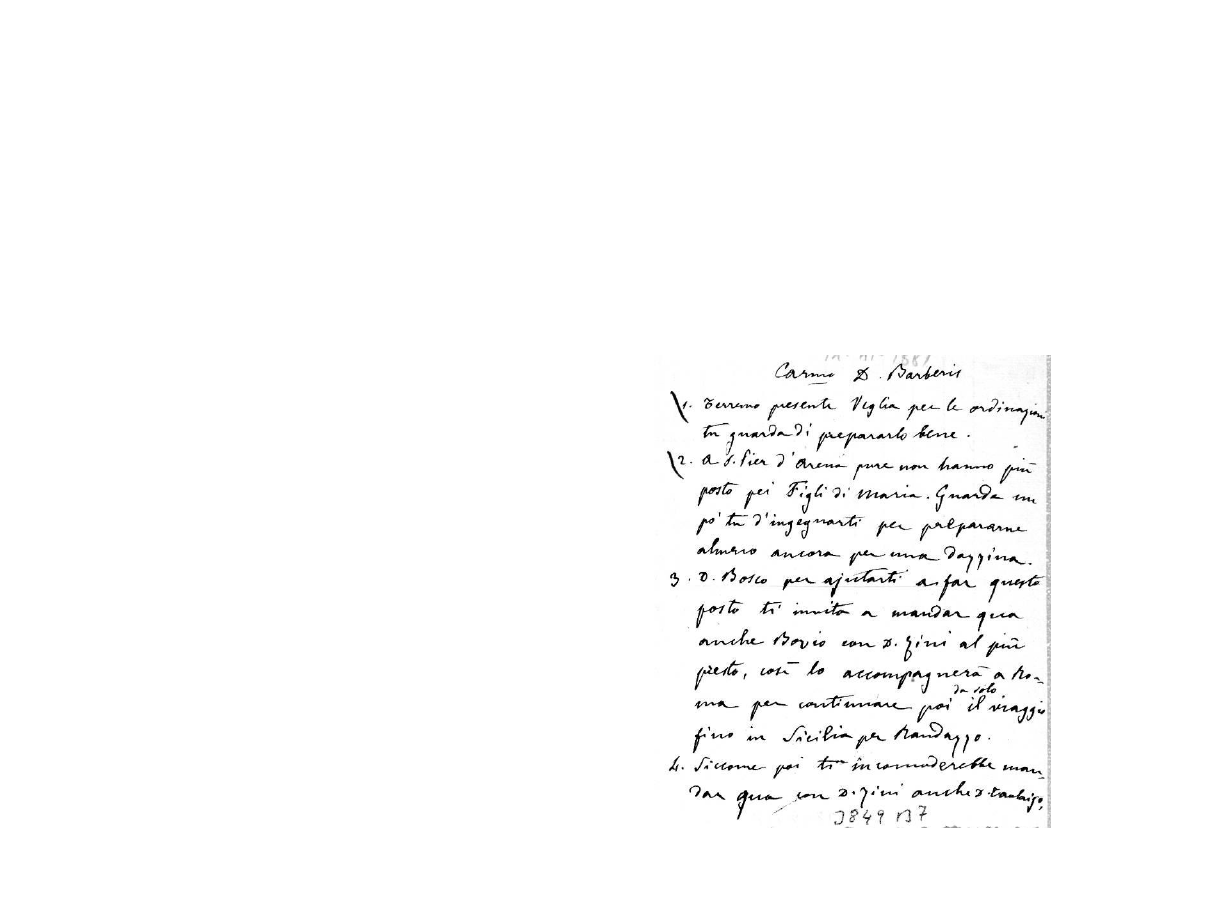 Carmo D. Barberis
1. Terremo presente Veglia per le ordinazioni
tu guarda di prepararlo bene.
2. A S. Pier d'Arena pure non hanno più
posto pei Figli di Maria. Guarda un
po' tu d'ingegnarti per prepararne
almeno ancora per una dozzina.
3. D. Bosco per ajutarti a far questo
posto ti invita a mandar qua
anche Bovio con D. Zini al più
presto, così lo accompagnerà a Ro-
da solo
ma per continuare poi il viaggio
fino in Sicilia per Randazzo.
4. Siccome poi ti incomoderebbe man-
dar qua con D. Zini anche D.
3849 B7